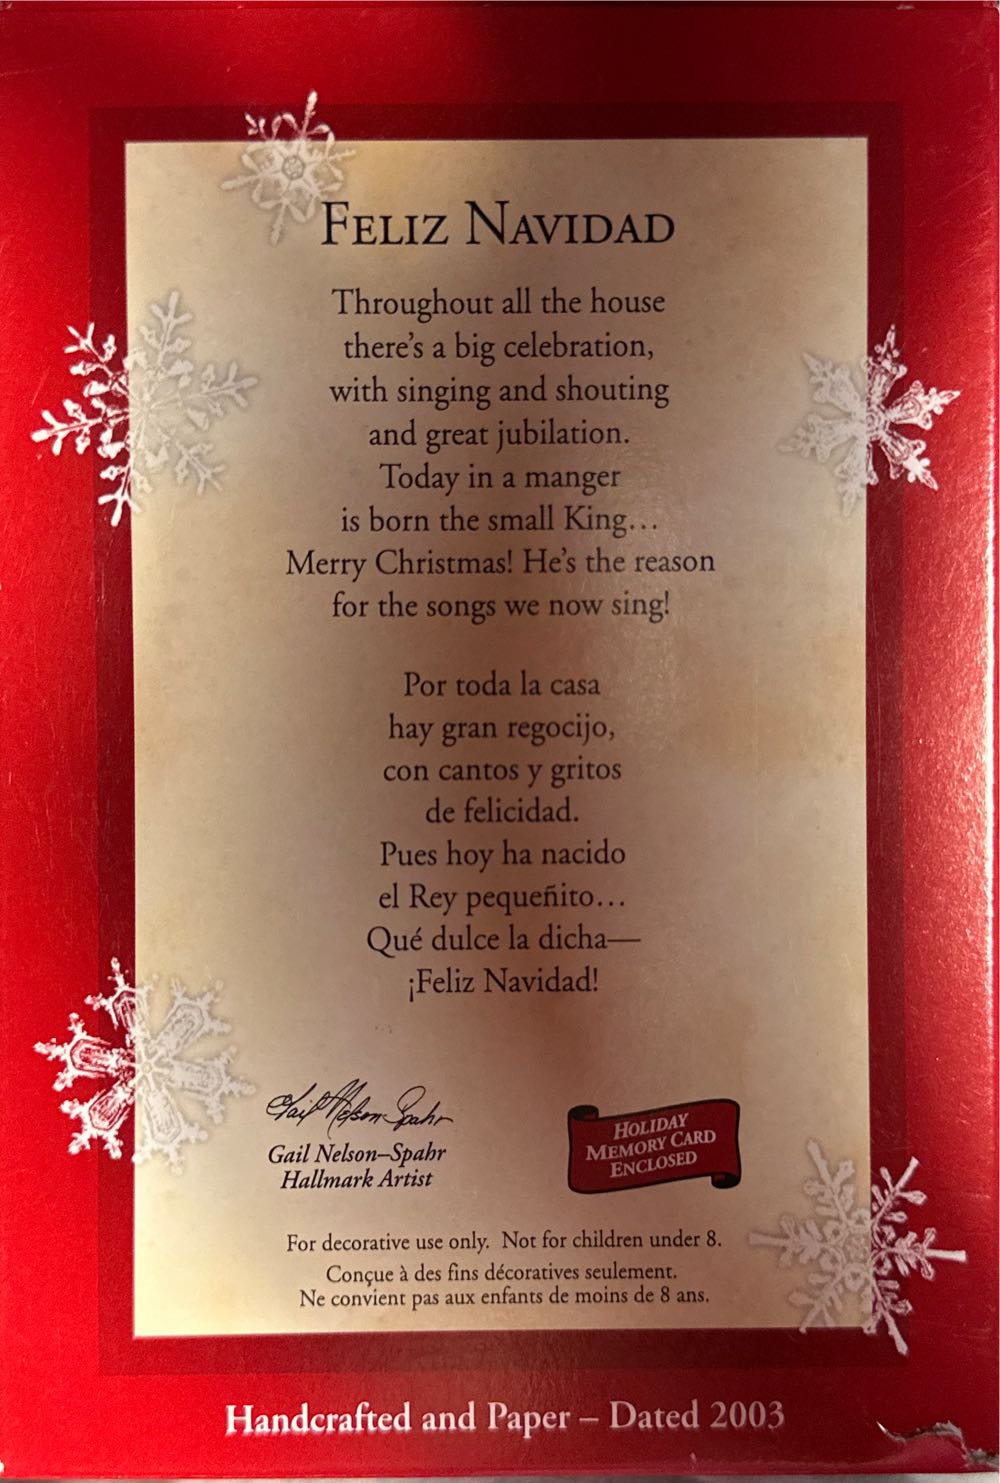 FELIZ NAVIDAD
Throughout all the house
there's a big celebration,
with singing and shouting
and great jubilation.
Today in a manger
is born the small King…
Merry Christmas! He's the reason
for the songs we now sing!
Por toda la casa
hay gran regocijo,
con cantos y gritos
de felicidad.
Pues hoy ha nacido
el Rey pequeñito…
Qué dulce la dicha—
¡Feliz Navidad!
Gail Nelson-Spahr
Gail Nelson–Spahr
Hallmark Artist
HOLIDAY
MEMORY CARD
ENCLOSED
For decorative use only. Not for children under 8.
Conçue à des fins décoratives seulement.
Ne convient pas aux enfants de moins de 8 ans.
Handcrafted and Paper – Dated 2003